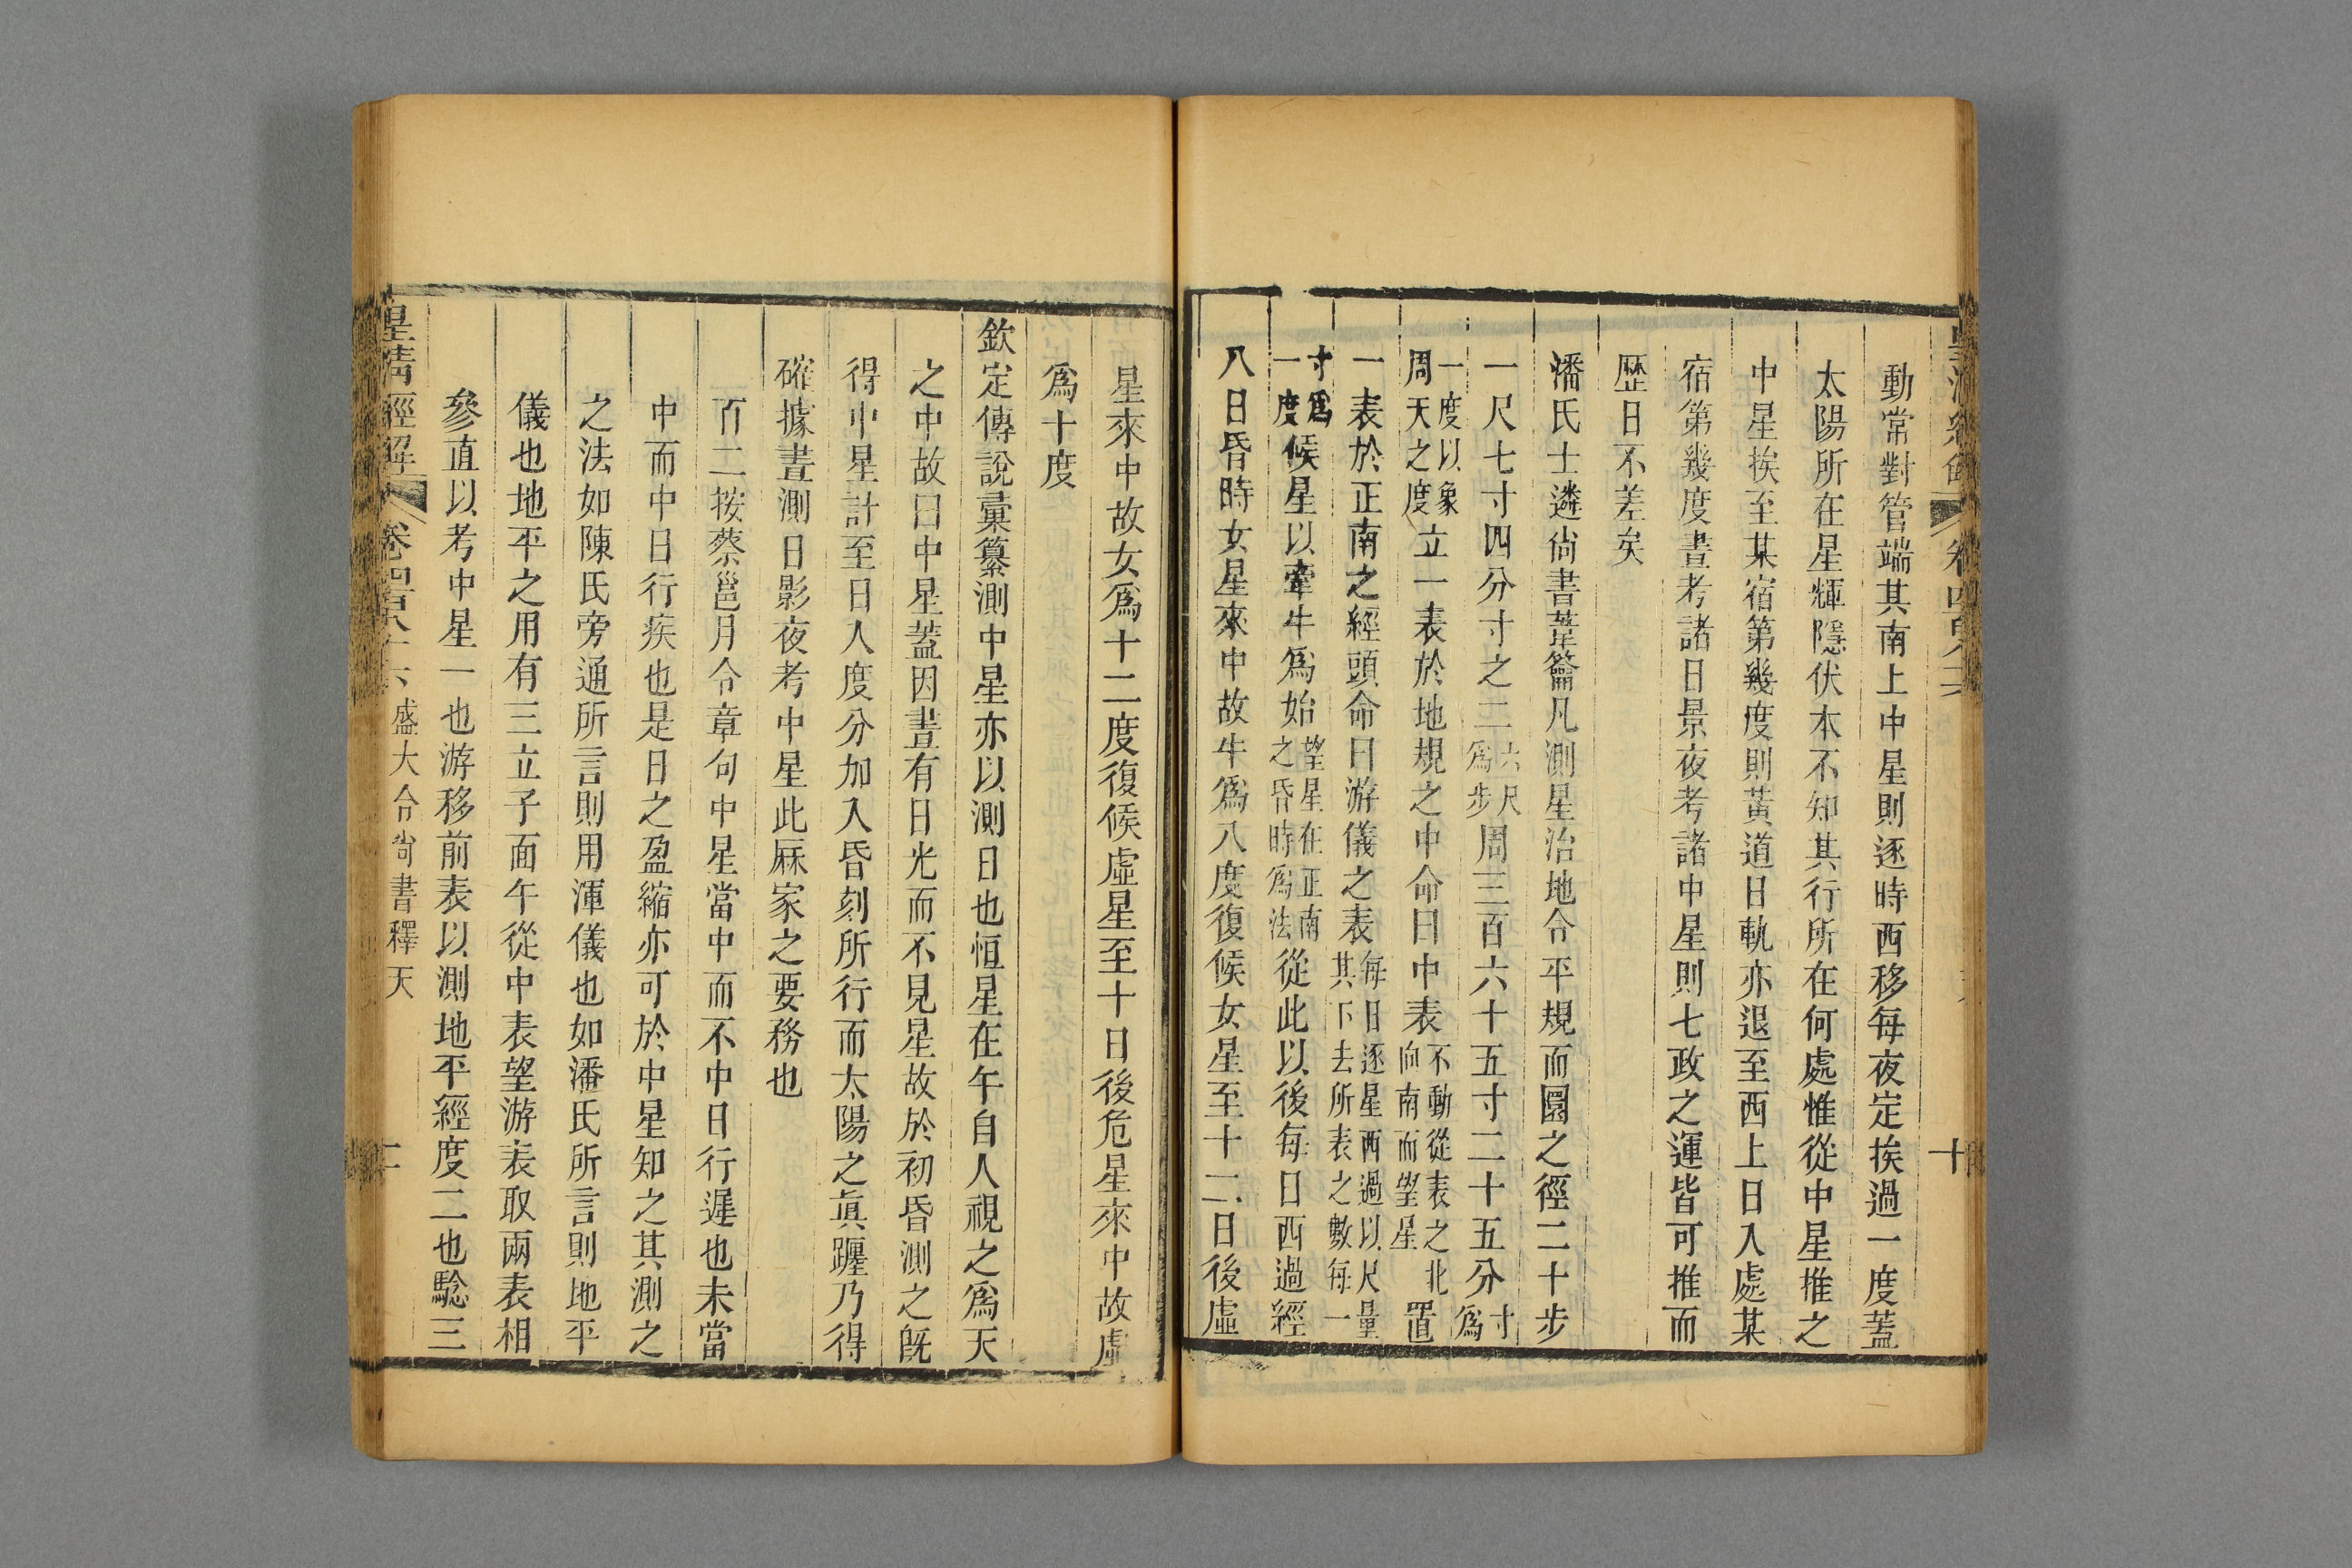 動常對管端其南上中星則逐時西移每夜定挨過一度蓋
太陽所在星輝隱伏本不知其行所在何處惟從中星推之
中星挨至某宿第幾度則黃道日軌亦退至西上日入處某
宿第幾度晝考諸日景夜考諸中星則七政之運皆可推而
歷日不差矣
潘氏士遴尙書葦籥凡測星治地合平規而圓之徑二十步
一尺七寸四分寸之二六尺爲步周三百六十五寸二十五分寸爲
一度以象周天之度立一表於地規之中命曰中表不動從表之北向南而望星置
一表於正南之經頭命曰游儀之表每日逐星西過以尺量其下去所表之數每一
寸爲一度候星以牽牛爲始望星在正南之昏時爲法從此以後每日西過經
八日昏時女星來中故牛爲八度復候女星至十二日後虛
十
星來中故女爲十二度復候虛星至十日後危星來中故虛
爲十度
欽定傳說彙纂測中星亦以測日也恒星在午自人視之爲天
之中故曰中星蓋因晝有日光而不見星故於初昏測之旣
得中星計至日入度分加入昏刻所行而太陽之眞躔乃得
確據晝測日影夜考中星此厤家之要務也
百二按蔡邕月令章句中星當中而不中日行遲也未當
中而中日行疾也是日之盈縮亦可於中星知之其測之
之法如陳氏旁通所言則用渾儀也如潘氏所言則地平
儀也地平之用有三立子面午從中表望游表取兩表相
參直以考中星一也游移前表以測地平經度二也騐三
皇清經解 卷四百八十六 盛大令尙書釋天